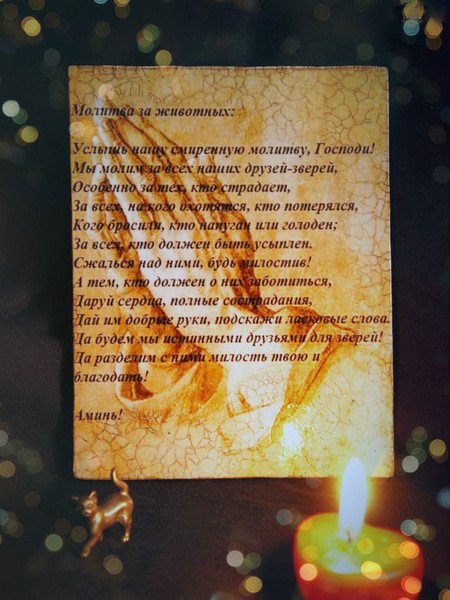 Молитва за животных:
Услышь нашу смиренную молитву, Господи!
Мы молим за всех наших друзей-зверей,
Особенно за тех, кто страдает,
За всех, на кого охотятся, кто потерялся,
Кого бросили, кто напуган или голоден;
За всех, кто должен быть усыплен.
Сжалься над ними, будь милостив!
А тем, кто должен о них заботиться,
Даруй сердца, полные сострадания,
Дай им добрые руки, подскажи ласковые слова.
Да будем мы истинными друзьями для зверей!
Да разделим с ними милость твою и
благодать!
Аминь!